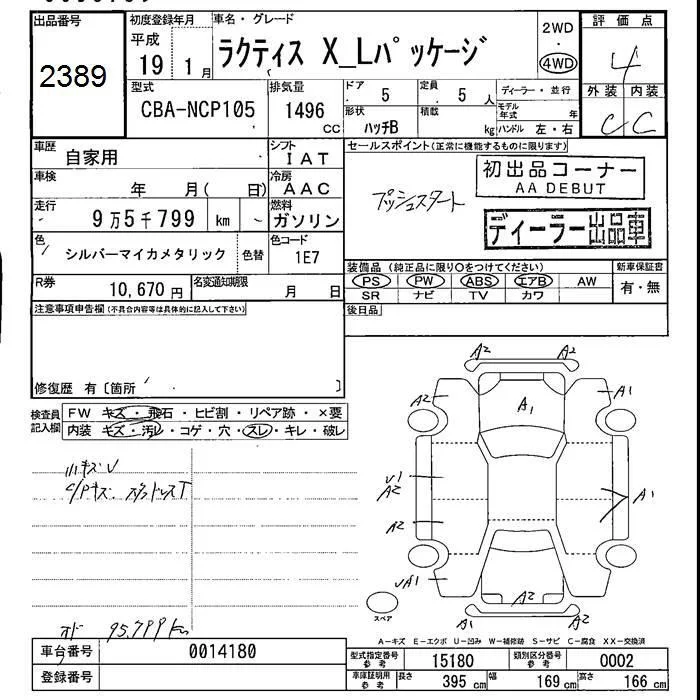 出品番号
2389
初度登録年月
平成
19 1月
車名・グレード
ラクティス X_Lパッケージ
2WD
4WD
評価点
4
外装 内装
C C
型式
CBA-NCP105
排気量
1496
CC
ドア
5
定員
5 人
ディーラー・並行
形状
ハッチB
積載
kg
モデル年式 年
ハンドル 左・右
車歴
自家用
シフト
IAT
車検
年 月( 日)
冷房
AAC
走行
9万5千799 km
燃料
ガソリン
色
シルバーマイカメタリック
色替
色コード
1E7
R券
10,670 円
名変通知期限
月 日
セールスポイント(正常に機能するものに限ります)
プッシュスタート
初出品コーナー
AA DEBUT
ディーラー出品車
装備品(純正品に限り○をつけてください)
新車保証書
PS PW ABS エアB AW
有・無
SR ナビ TV カワ
後日品
注意事項申告欄(不具合内容等は具体的に記入して下さい)
修復歴 有〔箇所 〕
検査員
記入欄
FW キズ・飛石・ヒビ割・リペア跡・×要
内装 キズ・汚レ・コゲ・穴・スレ・キレ・破レ
小キズU
C/Pキズ スダットレスT
オド 95.799km
A2 A2
A1
A1
U1
A2
A1
A2
UA1
A2
A1 A2
スペア
A-キズ E-エクボ U-凹み W-補修跡 S-サビ C-腐食 XX-交換済
車台番号
0014180
登録番号
型式指定番号
参考
15180
類別区分番号
参考
0002
車庫証明用
参考
長さ
395 cm
幅
169 cm
高さ
166 cm